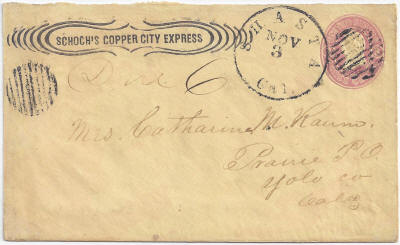 SCHOCH'S COPPER CITY EXPRESS
SHASTA
NOV
3
Cal.
Due 6
Mrs. Catharine M.
Prairie P.O.
Yolo co
Cala